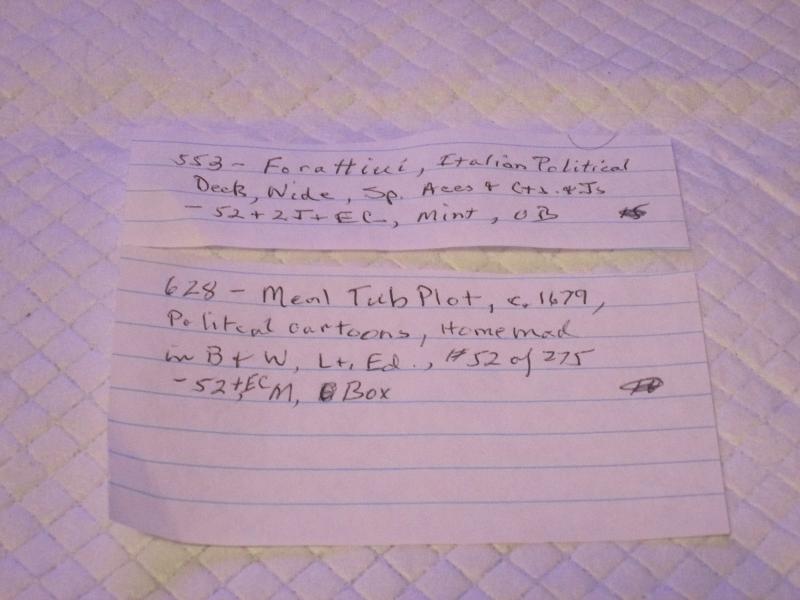 553 - Forattini, Italian Political
Deck, Wide, Sp. Aces & Cts. & Js
- 52 + 2J + EC, Mint, OB
628 - Meal Tub Plot, c. 1679,
Politcal cartoons, Homemad
in B & W, Lt. Ed., #52 of 275
- 52 + EC, M, Box